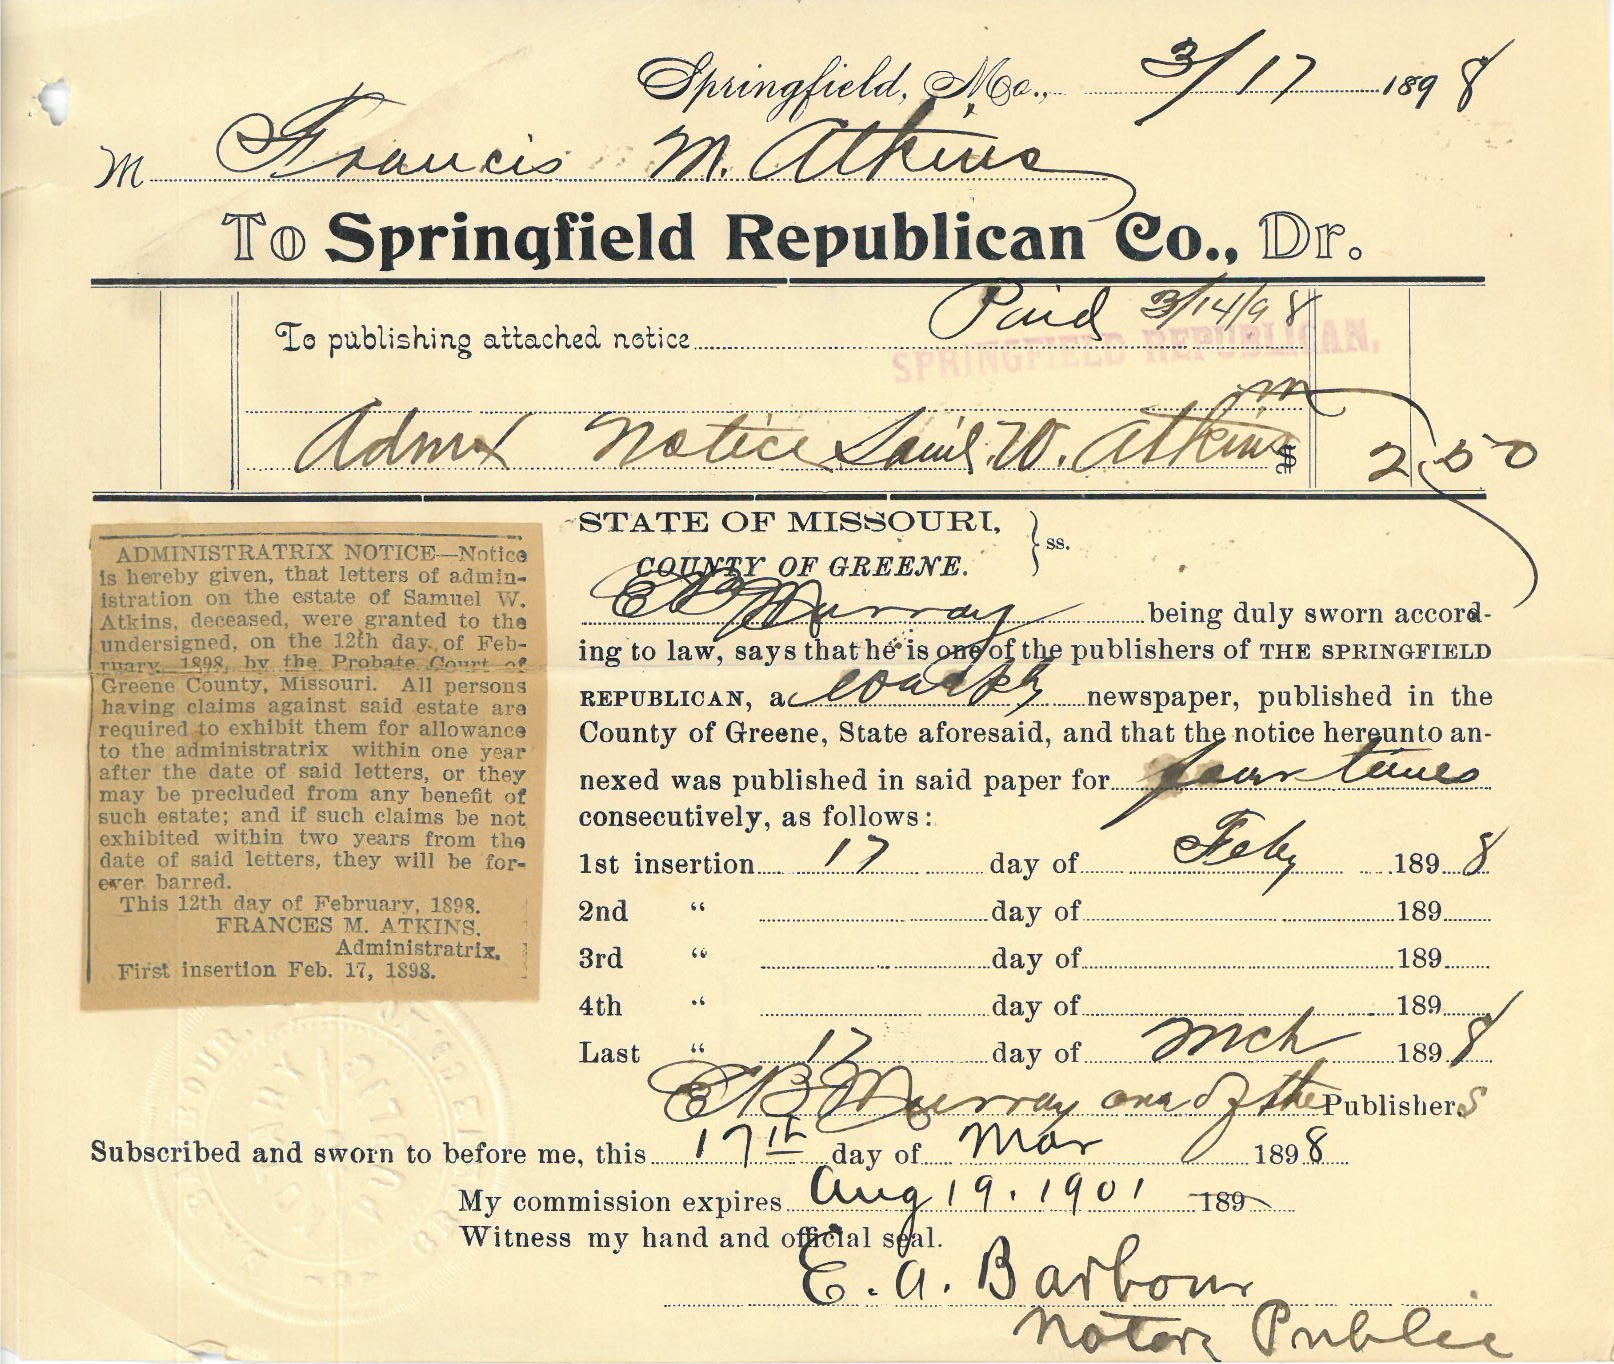 Springfield, Mo., 3/17 1898
M Francis M. Atkins
To Springfield Republican Co., Dr.
To publishing attached notice Paid 3/14/98
SPRINGFIELD REPUBLICAN,
Admx Notice Saml. W. Atkins $ 2.50
ADMINISTRATRIX NOTICE—Notice
is hereby given, that letters of admin-
istration on the estate of Samuel W.
Atkins, deceased, were granted to the
undersigned, on the 12th day of Feb-
ruary, 1898, by the Probate Court of
Greene County, Missouri. All persons
having claims against said estate are
required to exhibit them for allowance
to the administratrix within one year
after the date of said letters, or they
may be precluded from any benefit of
such estate; and if such claims be not
exhibited within two years from the
date of said letters, they will be for-
ever barred.
This 12th day of February, 1898.
FRANCES M. ATKINS,
Administratrix.
First insertion Feb. 17, 1898.
STATE OF MISSOURI,
COUNTY OF GREENE. ss.
E B Murray being duly sworn accord-
ing to law, says that he is one of the publishers of THE SPRINGFIELD
REPUBLICAN, a weekly newspaper, published in the
County of Greene, State aforesaid, and that the notice hereunto an-
nexed was published in said paper for four times
consecutively, as follows:
1st insertion 17 day of Feby 1898
2nd " day of 189
3rd " day of 189
4th " day of 189
Last " 17 day of Mch 1898
E B Murray one of the Publishers
Subscribed and sworn to before me, this 17th day of Mar 1898
My commission expires Aug 19. 1901 189
Witness my hand and official seal.
E. A. Barbour
Notary Public